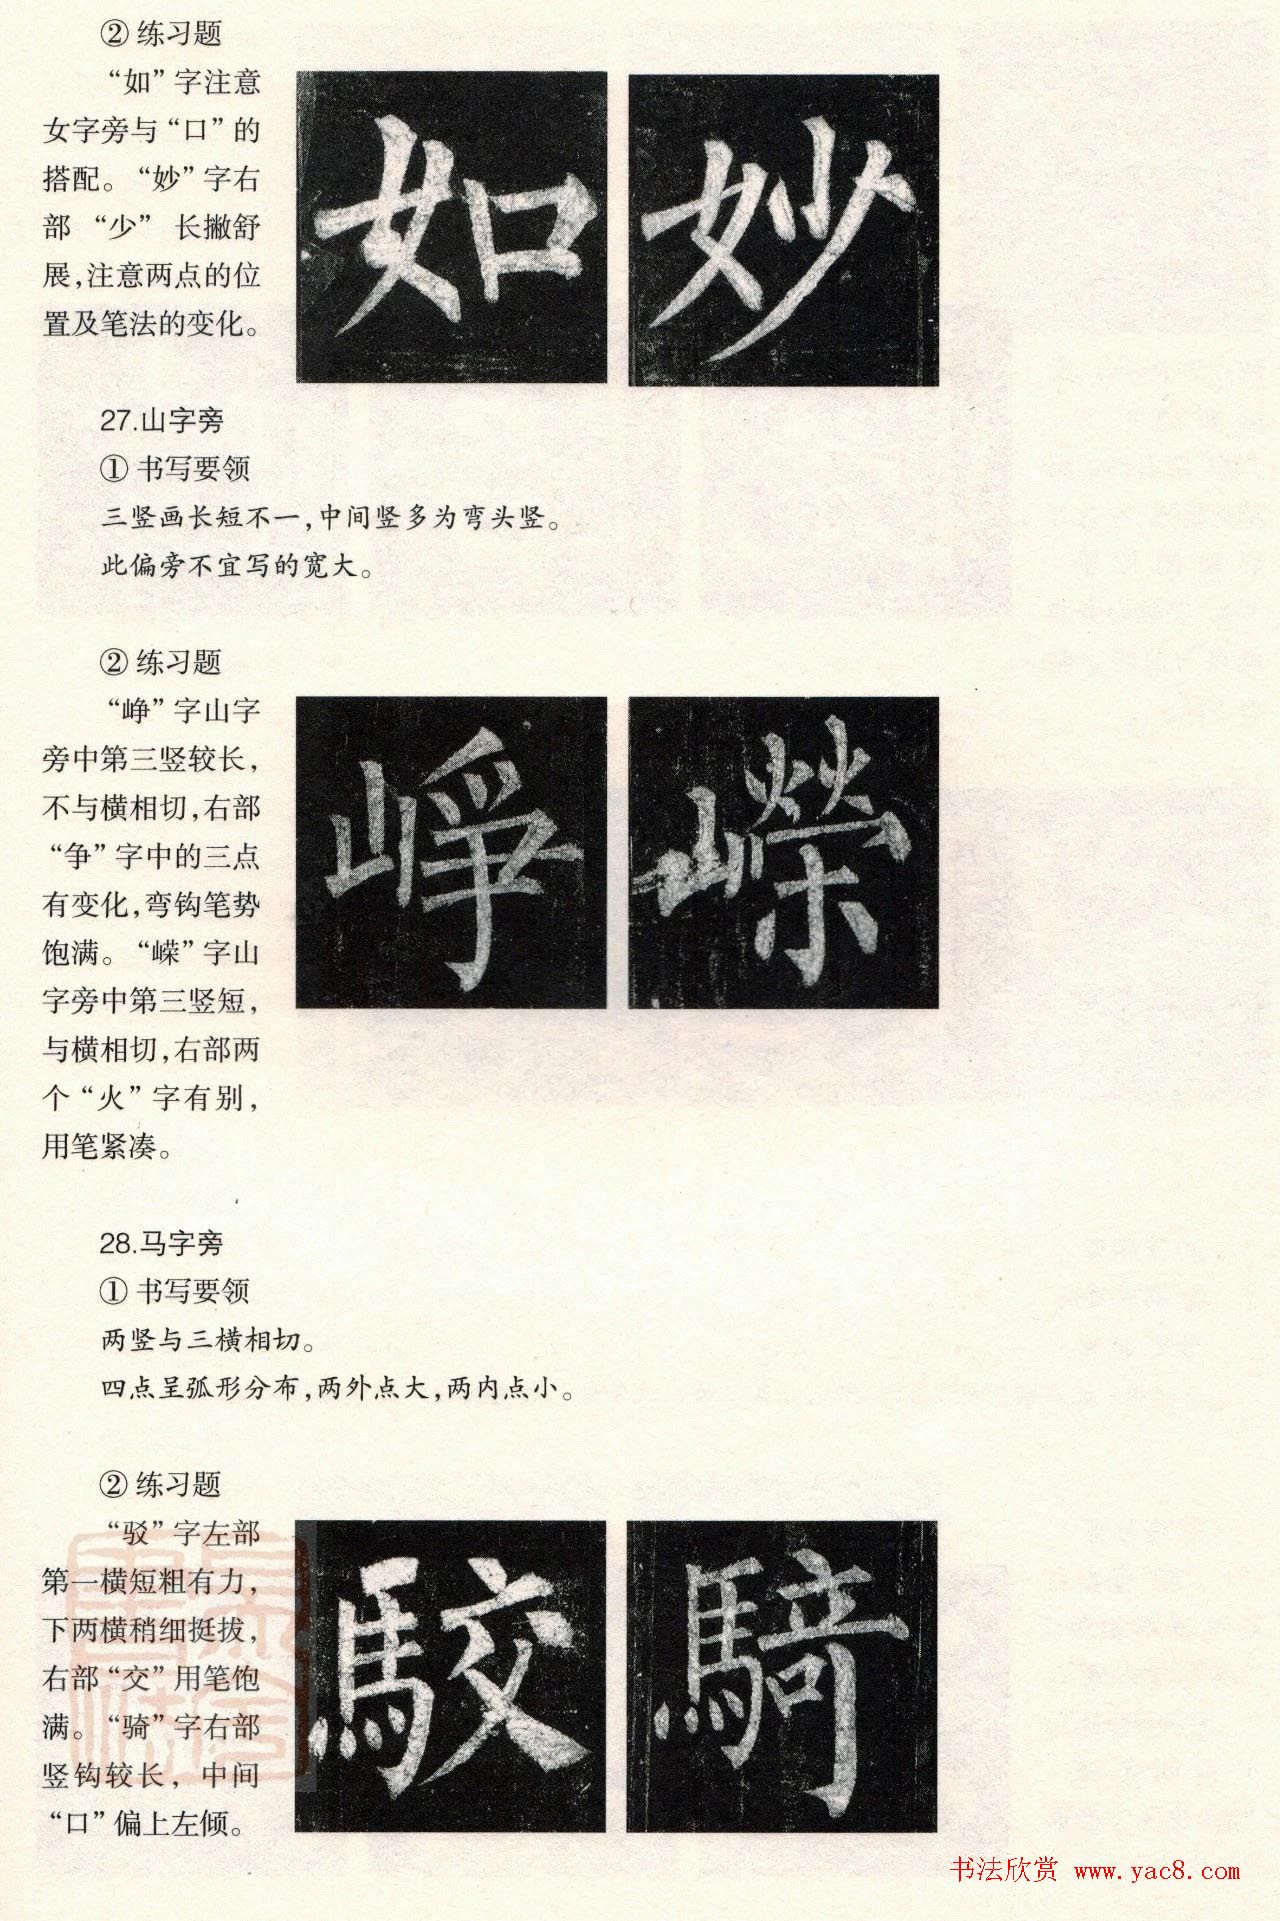 ② 练习题
“如”字注意
女字旁与“口”的
搭配。“妙”字右
部“少”长撇舒
展,注意两点的位
置及笔法的变化。
如 妙
27.山字旁
① 书写要领
三竖画长短不一,中间竖多为弯头竖。
此偏旁不宜写的宽大。
② 练习题
“峥”字山字
旁中第三竖较长,
不与横相切,右部
“争”字中的三点
有变化,弯钩笔势
饱满。“嵘”字山
字旁中第三竖短,
与横相切,右部两
个“火”字有别,
用笔紧凑。
崢 嶸
28.马字旁
① 书写要领
两竖与三横相切。
四点呈弧形分布,两外点大,两内点小。
② 练习题
“驳”字左部
第一横短粗有力,
下两横稍细挺拔,
右部“交”用笔饱
满。“骑”字右部
竖钩较长,中间
“口”偏上左倾。
駮 騎
书法欣赏 www.yac8.com